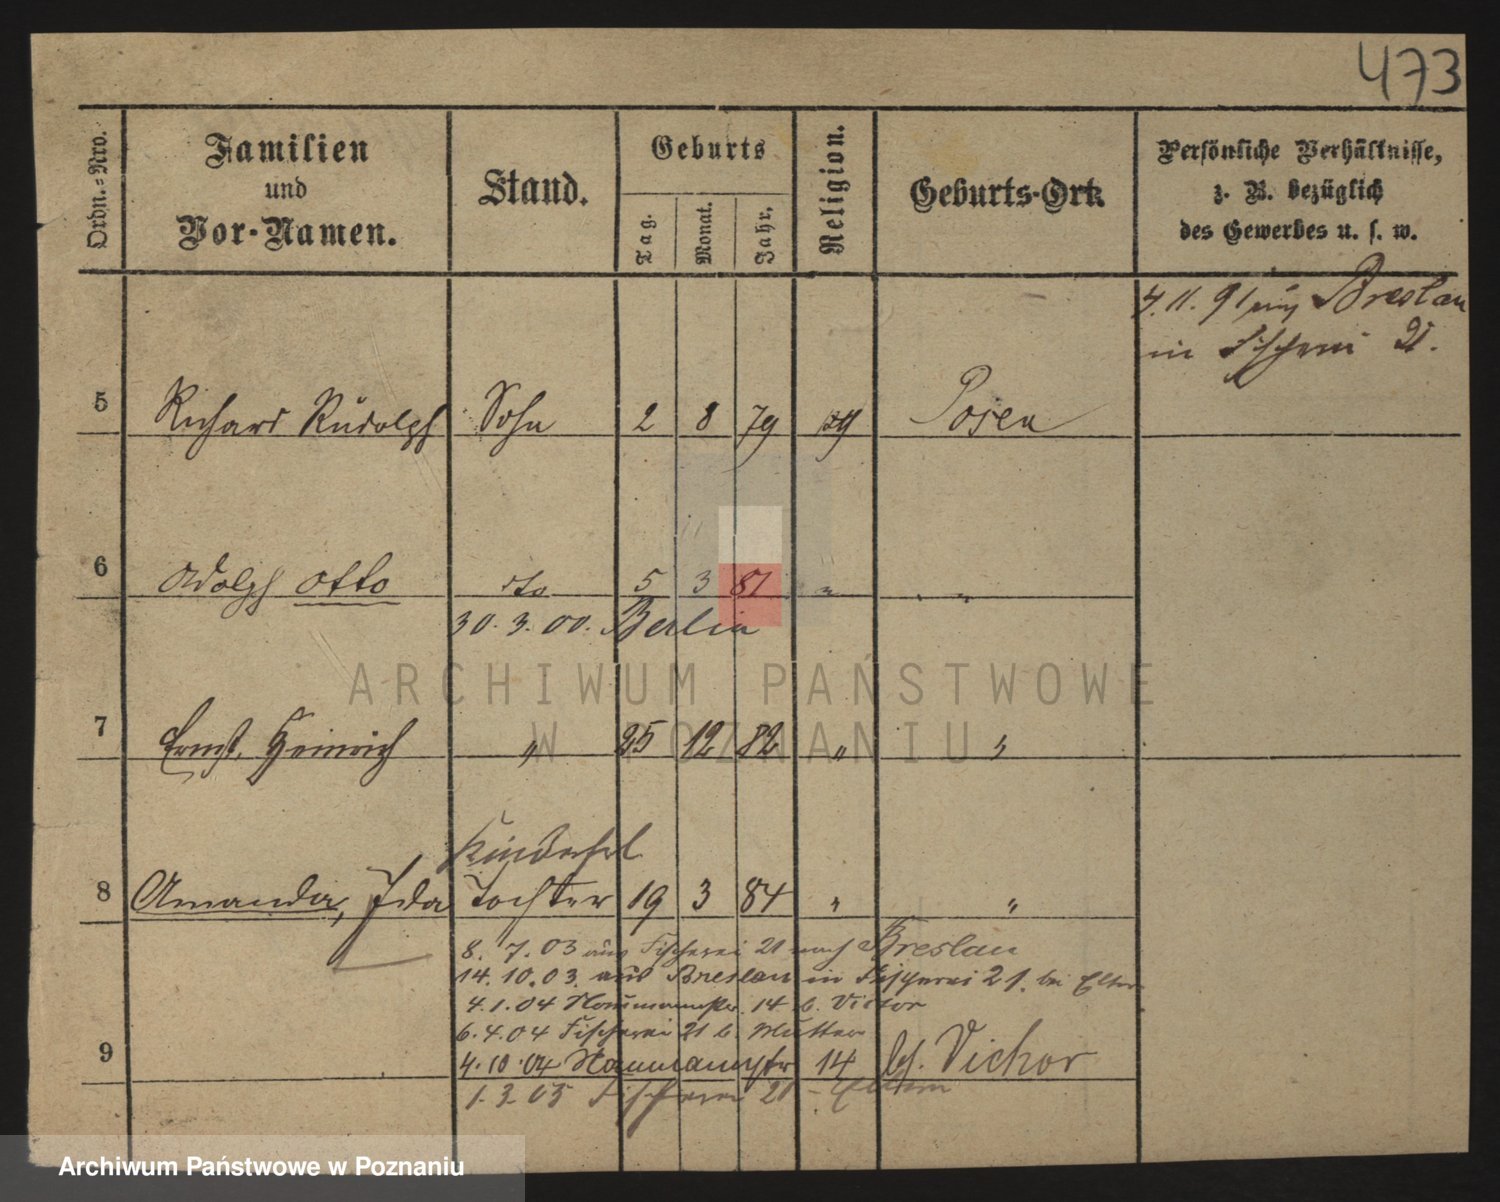 473
Ordn.-Nro.
Familien
und
Vor-Namen.
Stand.
Geburts
Tag.
Monat.
Jahr.
Religion.
Geburts-Ort.
Persönliche Verhältnisse,
z. B. bezüglich
des Gewerbes u. s. w.
4. 11. 91 aus Breslau
in Fischerei 21.
5 Richard Rudolph Sohn 2 8 79 Posen
6 Adolph Otto dto 5 3 81 " "
30. 3. 00. Berlin
7 Ernst, Heinrich " 25 12 82 " "
8 Amanda, Ida Tochter 19 3 84 " "
8. 7. 03 aus Fischerei 21 nach Breslau
14. 10. 03. aus Breslau in Fischerei 21. bei Eltern
4. 1. 04 Naumannstr. 14 b. Victor
6. 4. 04 Fischerei 21 b. Mutter
9
4. 10. 04 Naumannstr 14 bei Vichor
1. 3. 05 Fischerei 21 - Eltern
ARCHIWUM PAŃSTWOWE
W POZNANIU
Archiwum Państwowe w Poznaniu